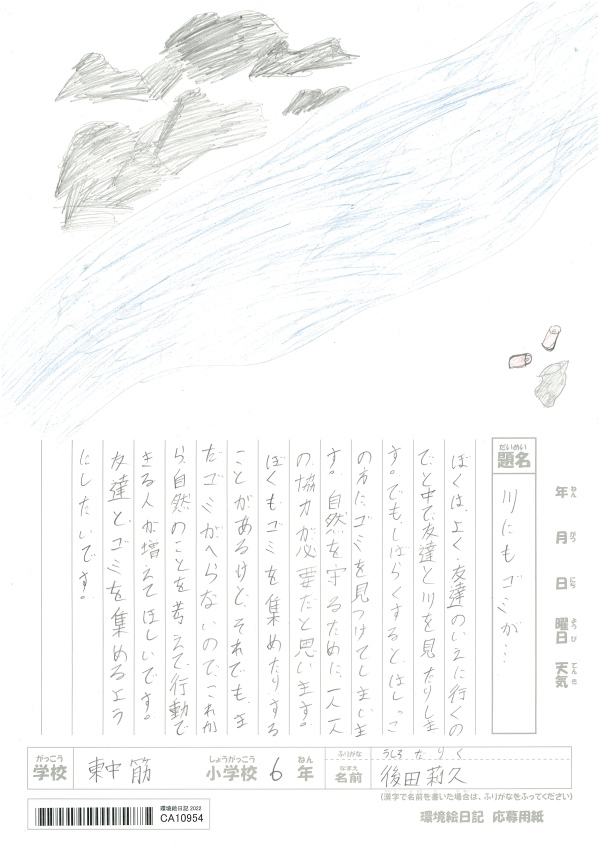 だいめい
題名
川にもゴミが…
年 ねん
月 がつ
日 にち
曜日 ようび
天気 てんき
ぼくは、よく友達のいえに行くの
で、と中で友達と川を見たりしま
す。でも、しばらくすると、はしっこ
の方にゴミを見つけてしまいま
す。自然を守るために、一人一人
の協力が必要だと思います。
ぼくもゴミを集めたりする
ことがあるけど、それでも、ま
だゴミがへらないので、これか
ら自然のことを考えて、行動で
きる人が増えてほしいです。
友達と、ゴミを集めるよう
にしたいです。
がっこう
学校
東中筋
しょうがっこう
小学校
6
ねん
年
ふりがな
うしろだ りく
なまえ
名前
後田莉久
(漢字で名前を書いた場合は、ふりがなをふってください)
環境絵日記 2022
CA10954
環境絵日記 応募用紙